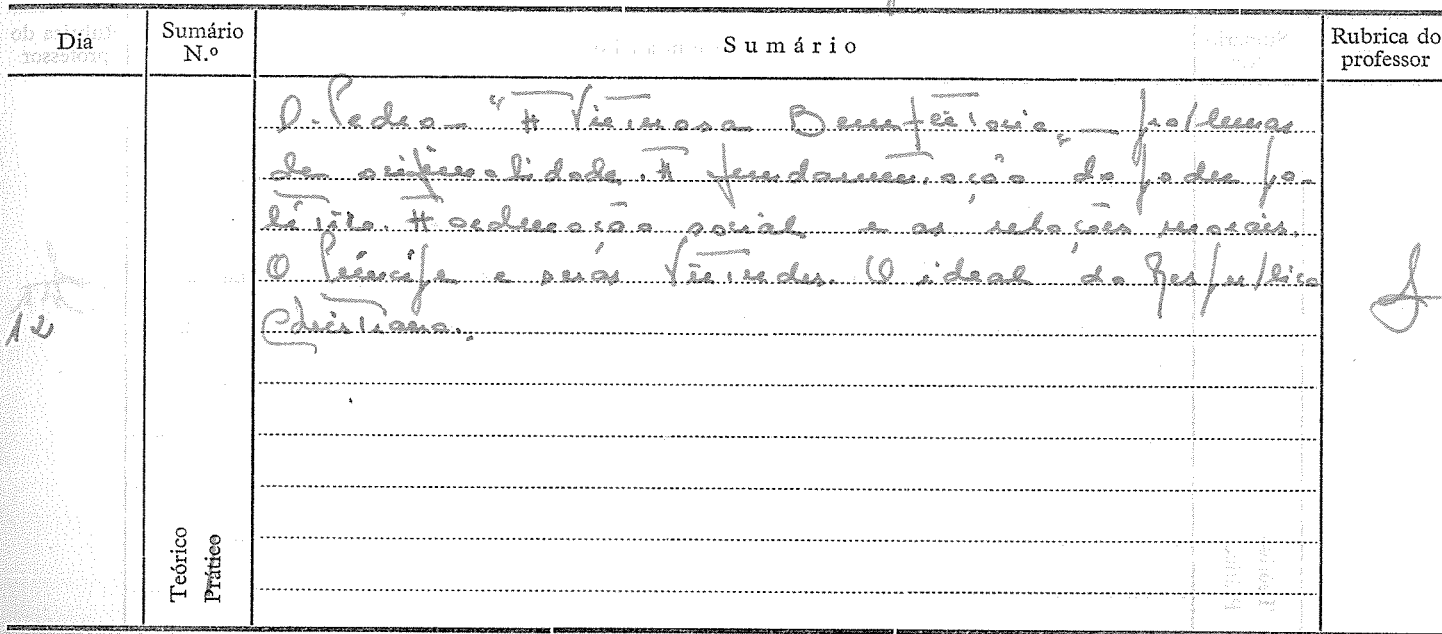 Dia
Sumário N.º
Sumário
Rubrica do professor
D. Pedro - "A Virtuosa Bemfeitoria" - problemas
de originalidade. A fundamentação do poder po-
lítico. A ordenação social e as relações morais.
O Príncipe e suas Virtudes. O ideal da Respublica
Christiana.
12
Teórico
Prático